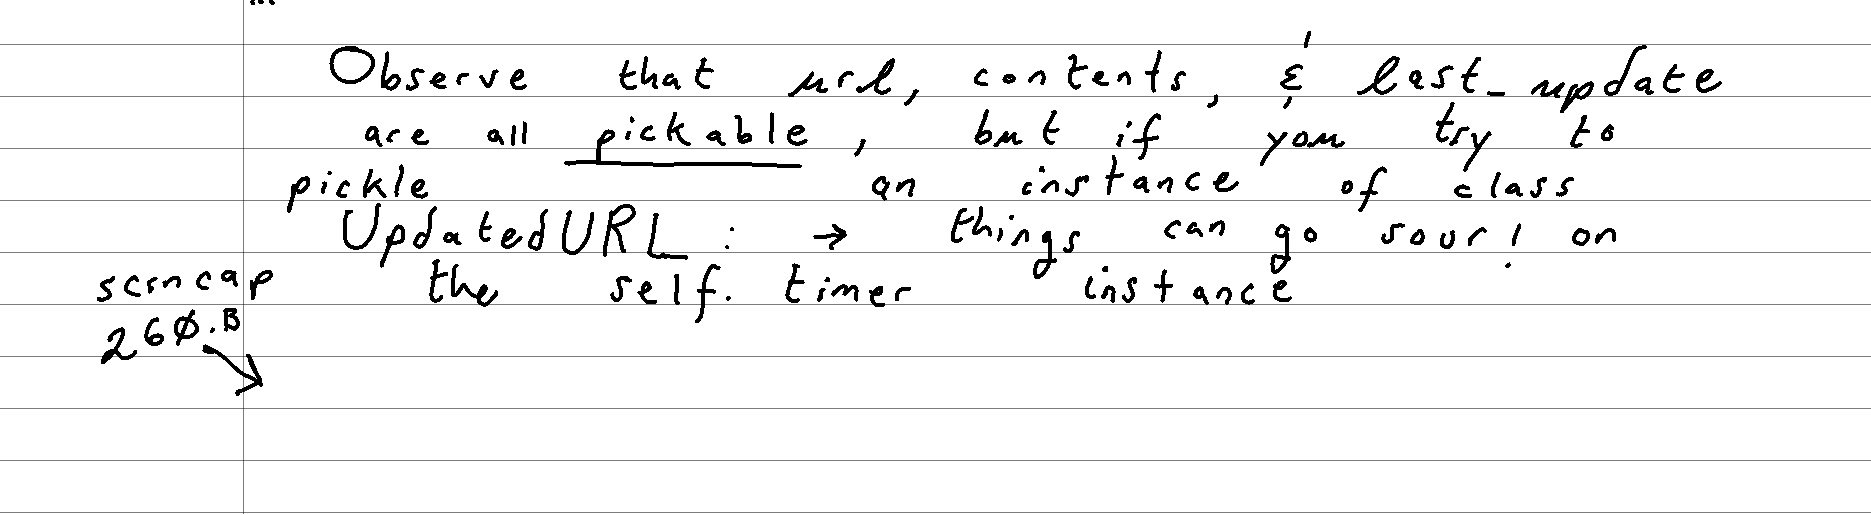 Observe that url, contents, & last_update
are all pickable, but if you try to
pickle an instance of class
UpdatedURL : → things can go sour! on
scrncap the self. timer instance
260.B